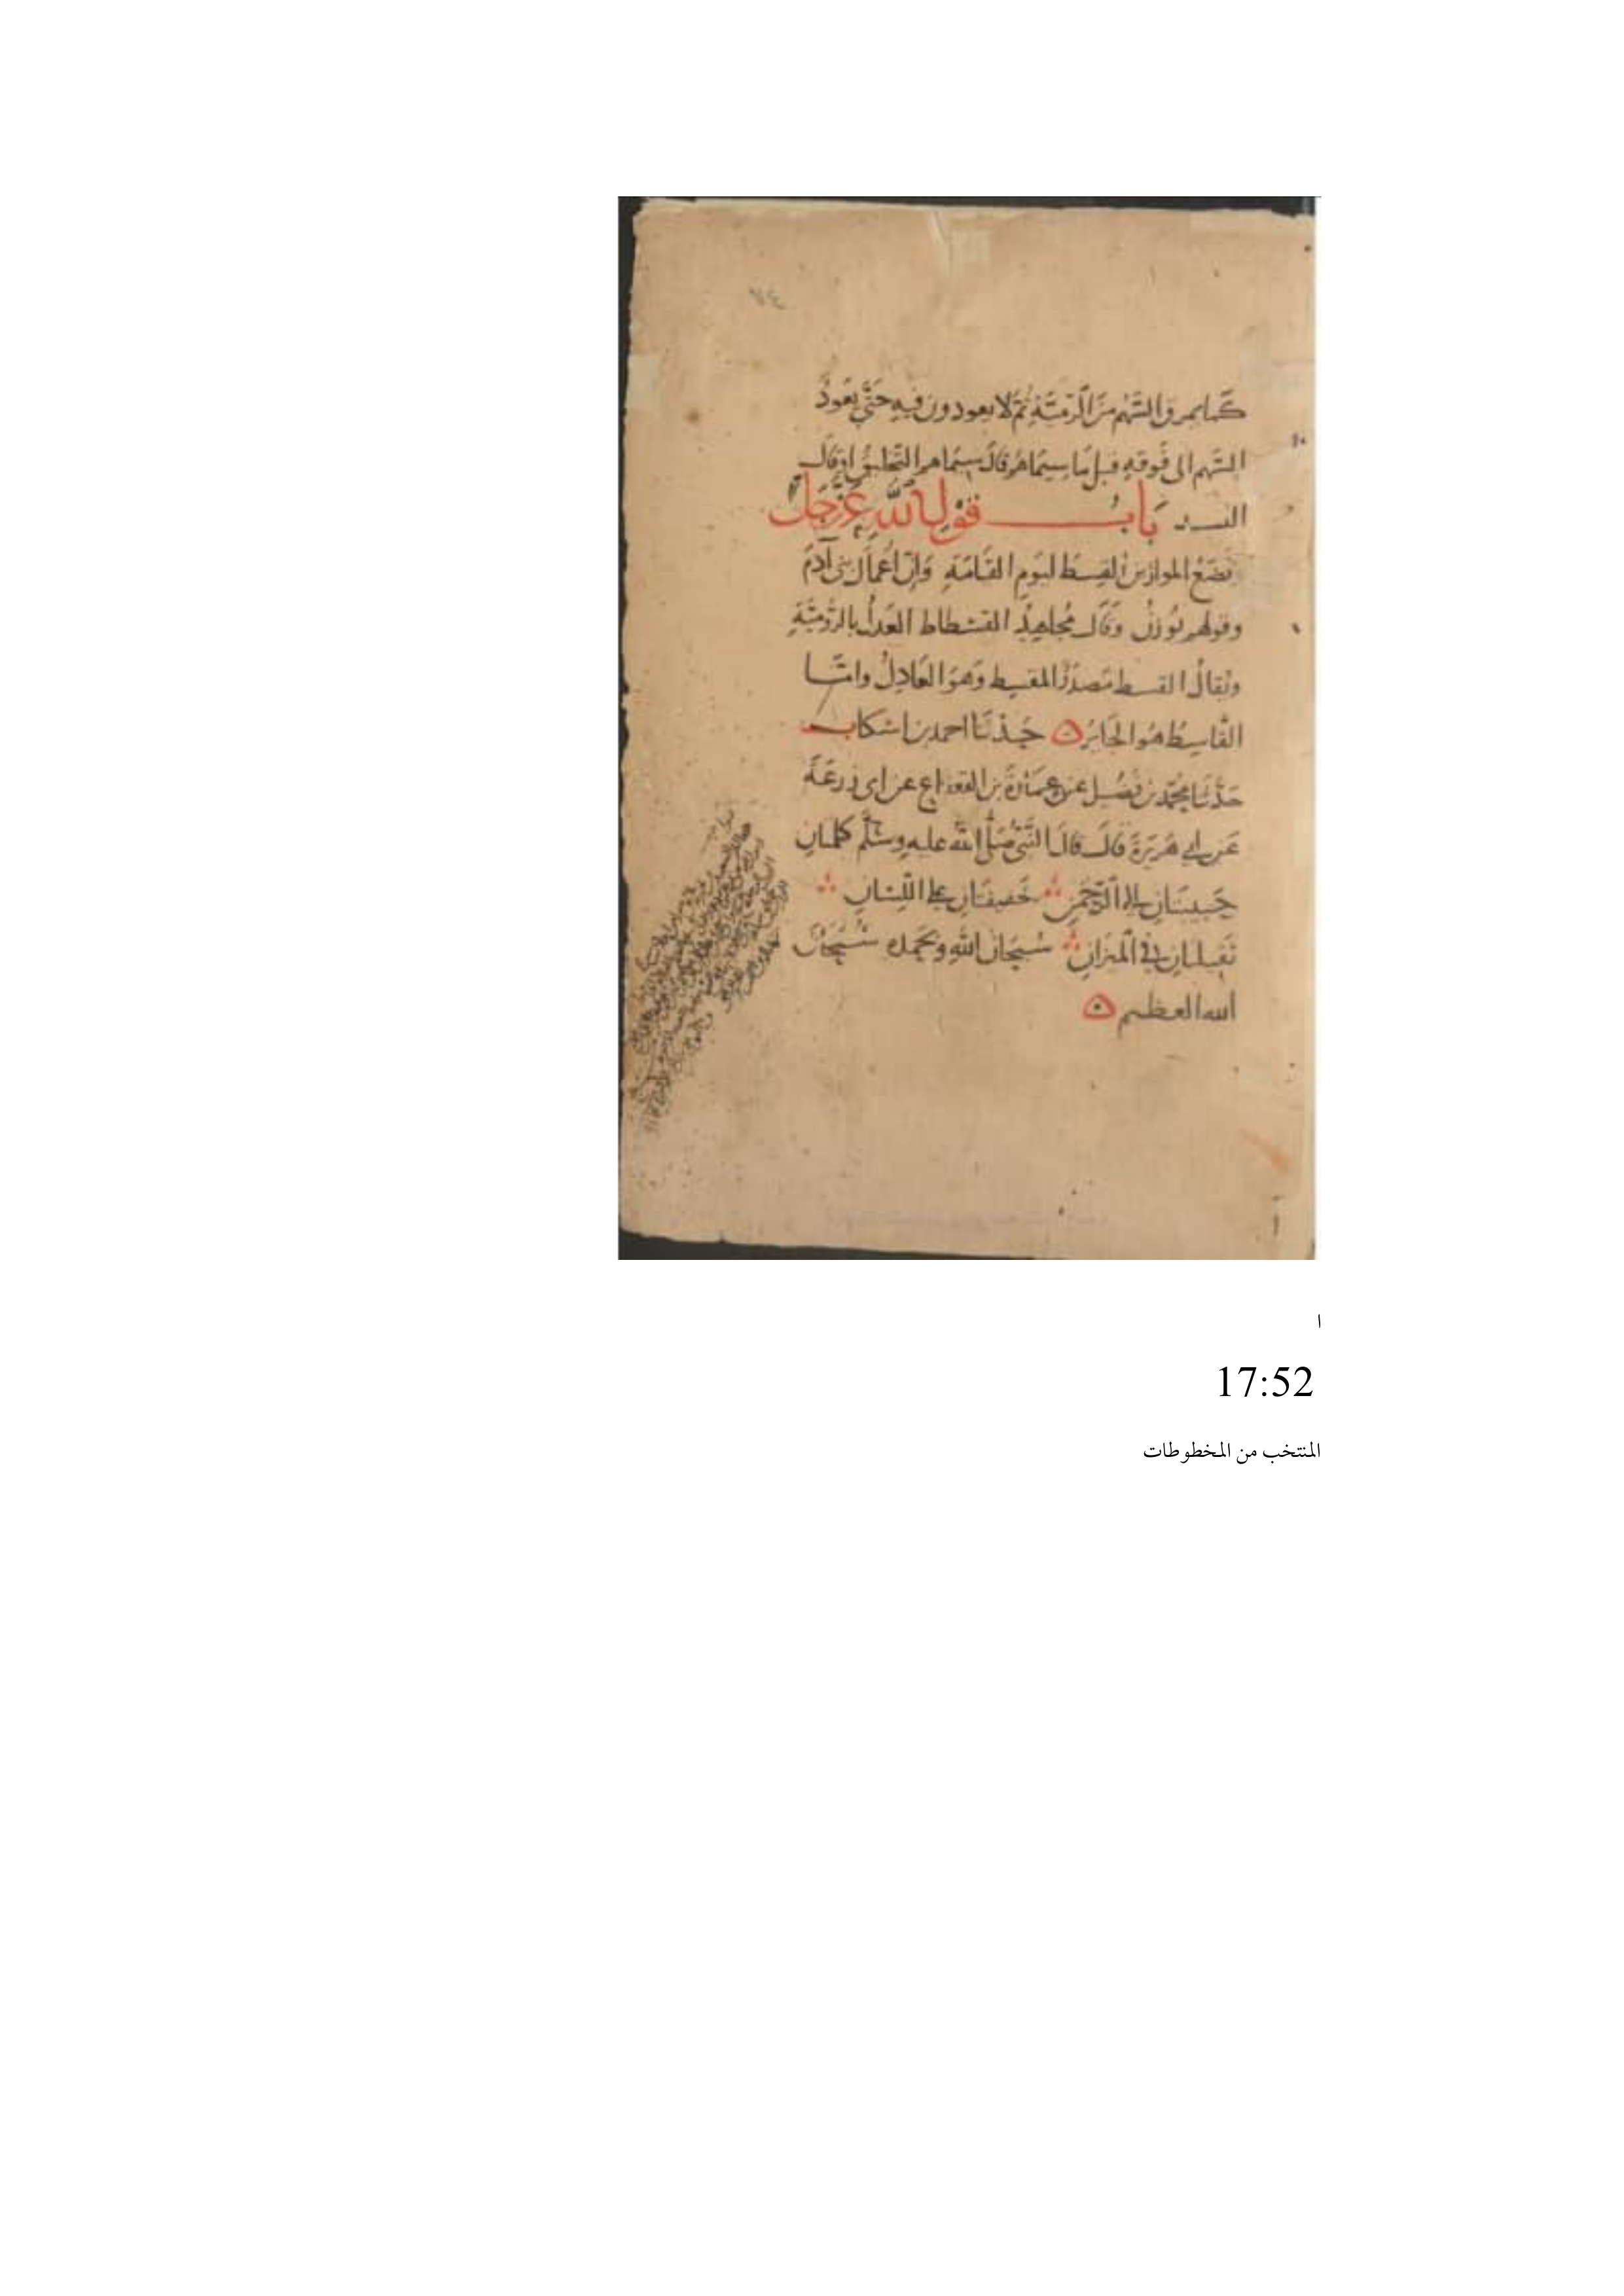 ٧٤
كَما يمرق السَّهم مِنَ الرَّمِيَّةِ ثُمَّ لا يعودون فيهِ حَتَّى يَعُودَ
السَّهم الى فُوقِهِ قيل مَا سيمَاهُم قَالَ سِيمَاهم التَّحليقُ او قَالَ
التسبيد بَابُ قَوْلِ اللَّهِ عَزَّ وَجَلَّ
وَنَضَعُ الموازين القِسطَ ليَوم القيَامَةِ وَاِنَّ اَعْمَالَ بنى آدَمَ
وقولهم يُوزَنُ وَقَالَ مُجَاهِدٌ القسْطاط العَدلُ بالرُّوميَّةِ
ويُقالُ القسط مَصدَرُ المقسِط وَهوَ العَادِلُ وامَّا
القَاسِطُ هُوَ الجَايِرُ حَدَّثَنَا احمد بن اشكاب
حَدَّثَنَا مُحَمَّد بن فُضَيل عَن عمَارَةَ بن القعقاع عن ابى زرعَةَ
عَن ابى هُرَيرَةَ قَالَ قَالَ النَّبِيُّ صَلَّى اللَّهُ عليهِ وسَلَّم كلمَتانِ
حَبيبَتَانِ الى الرَّحْمَنِ خَفيفَتَانِ على اللِّسَانِ
ثَقيلتانِ فى الميزَانِ سُبحَانَ اللَّهِ وبحَمده سُبْحَانَ
الله العظيم
ا
17:52
المنتخب من المخطوطات